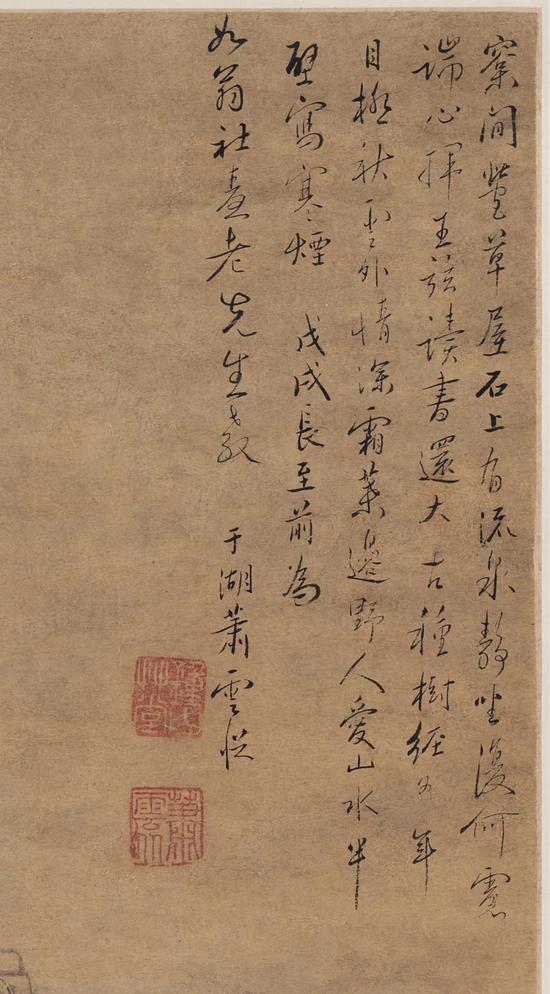 窠間營草屋石上有流泉靜坐復何慮
端心揮玉絃讀書還大古種樹經五年
目極秋雲外情深霜葉邊野人愛山水半
壁寫寒煙 戊戌長至前為
如翁社臺老先生教 于湖蕭雲從
蕭雲從